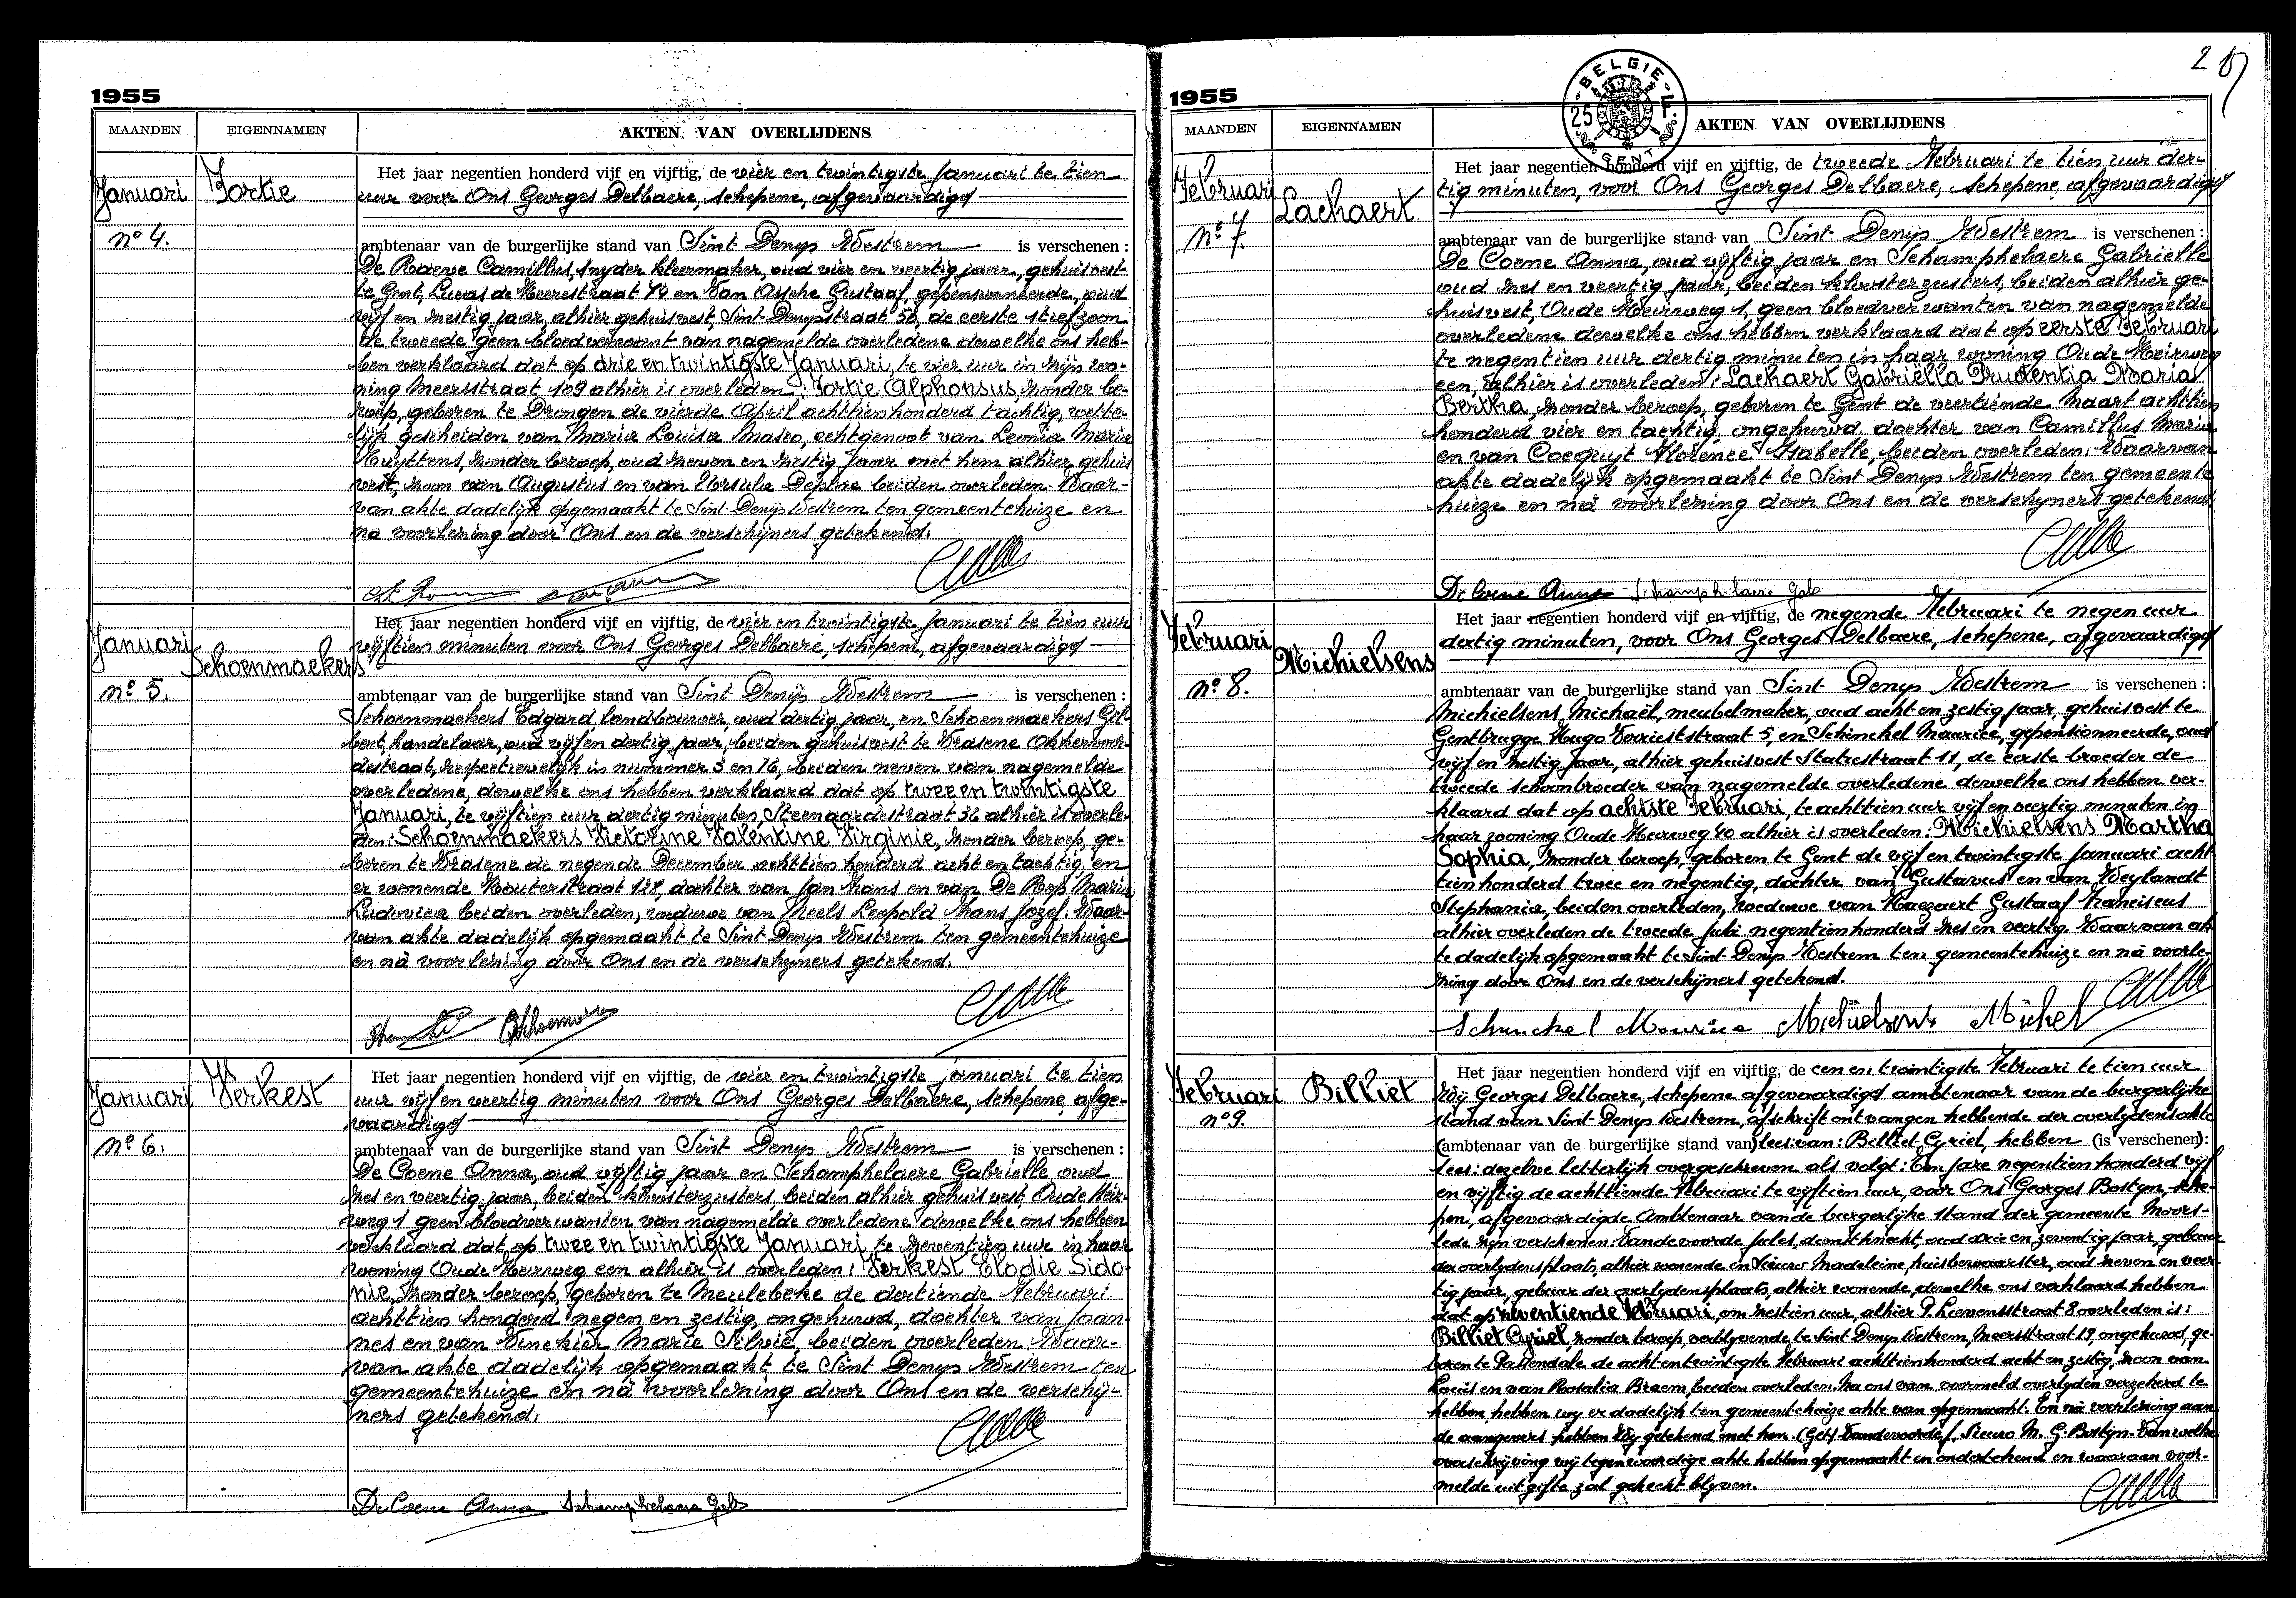 1955
MAANDEN EIGENNAMEN AKTEN VAN OVERLIJDENS
Januari
nº 4.
Fortie
Het jaar negentien honderd vijf en vijftig, de vier en twintigste Januari te tien
uur voor Ons Georges Delbaere, schepene, afgevaardigd
ambtenaar van de burgerlijke stand van Sint Denijs Westrem is verschenen :
De Raeve Camillus, snyder kleermaker, oud vier en veertig jaar, gehuisvest
te Gent, Lucas de Heerestraat 74 en Van Assche Gustaaf, gepensionneerde, oud
vijf en zestig jaar, alhier gehuisvest, Sint Denijsstraat 50, de eerste stiefzoon
de tweede geen bloedverwant van nagemelde overledene dewelke ons heb-
ben verklaard dat op drie en twintigste Januari, te vier uur in zijn wo-
ning Meersstraat 109 alhier is overleden : Fortie Alphonsus, zonder be-
roep, geboren te Drongen de vierde April achttienhonderd tachtig, wette-
lijk gescheiden van Maria Louisa Maseo, echtgenoot van Leonia Maria
Huyttens, zonder beroep, oud zeven en zestig jaar met hem alhier gehuis
vest, zoon van Augustus en van Ursula Deplae beiden overleden. Waar-
van akte dadelijk opgemaakt te Sint Denijs Westrem ten gemeentehuize en
na voorlezing door Ons en de verschijners getekend.
Januari
nº 5.
Schoenmaekers
Het jaar negentien honderd vijf en vijftig, de vier en twintigste Januari te tien uur
vijftien minuten voor Ons Georges Delbaere, schepene, afgevaardigd
ambtenaar van de burgerlijke stand van Sint Denijs Westrem is verschenen :
Schoenmaekers Edgard, landbouwer, oud dertig jaar, en Schoenmaekers Gil-
bert, handelaar, oud vijf en dertig jaar, beiden gehuisvest te Vrasene
destraat, respectievelijk in nummer 3 en 16, beiden neven van nagemelde
overledene, dewelke ons hebben verklaard dat op twee en twintigste
Januari, te vijftien uur dertig minuten, Steenaardestraat 36 alhier is overle-
den : Schoenmaekers Victorine Valentine Virginie, zonder beroep, ge-
boren te Vrasene de negende December achttien honderd acht en tachtig, en
er wonende Kouterstraat 127, dochter van Jan Frans en van De Rop Maria
Ludovica beiden overleden, weduwe van Heels Leopold Frans Jozef. Waar-
van akte dadelijk opgemaakt te Sint Denijs Westrem ten gemeentehuize
en nà voorlezing door Ons en de verschijners getekend.
Januari
nº 6.
Verkest
Het jaar negentien honderd vijf en vijftig, de vier en twintigste januari te tien
uur vijf en veertig minuten voor Ons Georges Delbaere, schepene, afge-
vaardigd
ambtenaar van de burgerlijke stand van Sint Denijs Westrem is verschenen :
De Coene Anna, oud vijftig jaar en Schamphelaere Gabrielle, oud
zes en veertig jaar, beiden kloosterzusters, beiden alhier gehuisvest, Oude Meir-
weg 1 geen bloedverwanten van nagemelde overledene dewelke ons hebben
verklaard dat op twee en twintigste Januari te zeventien uur in haar
woning Oude Meirweg een alhier is overleden : Verkest Elodie Sido-
nie, zonder beroep, geboren te Meulebeke de dertiende Februari
achttien honderd negen en zestig, ongehuwd, dochter van Joan-
nes en van Vinckier Marie Silvie, beiden overleden. Waar-
van akte dadelijk opgemaakt te Sint Denijs Westrem ten
gemeentehuize en nà voorlezing door Ons en de verschij-
ners getekend.
De Coene Anna Schamphelaere Gab
1955
BELGIE
25 F
GENT
MAANDEN EIGENNAMEN AKTEN VAN OVERLIJDENS
Februari
nº 7.
Lachaert
Het jaar negentien honderd vijf en vijftig, de tweede Februari te tien uur der-
tig minuten, voor Ons Georges Delbaere, schepene, afgevaardigd
ambtenaar van de burgerlijke stand van Sint Denijs Westrem is verschenen :
De Coene Anna, oud vijftig jaar en Schamphelaere Gabrielle
oud zes en veertig jaar, beiden kloosterzusters, beiden alhier ge-
huisvest, Oude Meirweg 1, geen bloedverwanten van nagemelde
overledene dewelke ons hebben verklaard dat op eerste Februari
te negentien uur dertig minuten in haar woning Oude Meirweg
een, alhier is overleden : Lachaert Gabriella Prudentia Maria
Bertha, zonder beroep, geboren te Gent de veertiende Maart achttien
honderd vier en tachtig, ongehuwd, dochter van Camillus Maria
en van Cocquyt Florence Isabelle, beiden overleden. Waarvan
akte dadelijk opgemaakt te Sint Denijs Westrem ten gemeente
huize en nà voorlezing door Ons en de verschijners getekend.
De Coene Anna Schamphelaere Gab
Februari
nº 8.
Michielsens
Het jaar negentien honderd vijf en vijftig, de negende Februari te negen uur
dertig minuten, voor Ons Georges Delbaere, schepene, afgevaardigd
ambtenaar van de burgerlijke stand van Sint Denijs Westrem is verschenen :
Michielsens Michaël, meubelmaker, oud acht en zestig jaar, gehuisvest te
Gentbrugge Hugo Verrieststraat 5, en Schinckel Maurice, gepensionneerde, oud
vijf en zestig jaar, alhier gehuisvest Statiestraat 11, de eerste broeder de
tweede schoonbroeder van nagemelde overledene dewelke ons hebben ver-
klaard dat op achtste Februari, te achttien uur vijf en veertig minuten in
haar woning Oude Meirweg 40 alhier is overleden : Michielsens Martha
Sophia, zonder beroep, geboren te Gent de vijf en twintigste Januari acht
tien honderd twee en negentig, dochter van Gustavus en van Weylandt
Stephanie, beiden overleden, weduwe van Haezaert Gustaaf Franciscus
alhier overleden de tweede Juli negentienhonderd zes en veertig. Waarvan ak
te dadelijk opgemaakt te Sint Denijs Westrem ten gemeentehuize en nà voorle-
zing door Ons en de verschijners getekend.
Schinckel Maurice Michielsens Michel
Februari
nº 9.
Billiet
Het jaar negentien honderd vijf en vijftig, de een en twintigste Februari te tien uur
Wij Georges Delbaere, schepene afgevaardigd ambtenaar van de burgerlijke
stand van Sint Denijs Westrem, afschrift ontvangen hebbende der overlijdensakte
(ambtenaar van de burgerlijke stand van) lees: van: Billiet Cyriel, hebben (is verschenen):
lees: dezelve letterlijk overgeschreven als volgt: Ten jare negentien honderd vijf
en vijftig de achttiende Februari te vijftien uur, voor Ons Georges Bostyn, sche-
pen, afgevaardigde Ambtenaar van de burgerlijke stand der gemeente Moors-
lede zijn verschenen: Vandevoorde Jules, dienstknecht, oud drie en zeventig jaar, gebuur
der overlijdensplaats, alhier wonende en Sieuw Madeleine, huisbewaarster, oud zeven en veer-
tig jaar, gebuur der overlijdensplaats, alhier wonende, dewelke ons verklaard hebben
dat op zeventiende Februari, om zestien uur, alhier P. Lievensstraat 8 overleden is:
Billiet Cyriel, zonder beroep, verblijvende te Sint Denijs Westrem, Meersstraat 19, ongehuwd, ge-
boren te Passendale de acht en twintigste Februari achttienhonderd acht en zestig, zoon van
Louis en van Rosalia Braem, beiden overleden. Na ons van voormeld overlijden verzekerd te
hebben, hebben wij er dadelijk ten gemeentehuize akte van opgemaakt. En nà voorlezing aan
de aangevers hebben Wij getekend met hen. (Get) Vandevoorde J. Sieuw M. G. Bostyn. Van welke
overschrijving wij tegenwoordige akte hebben opgemaakt en ondertekend en waaraan voor-
melde uitgifte zal gehecht blijven.